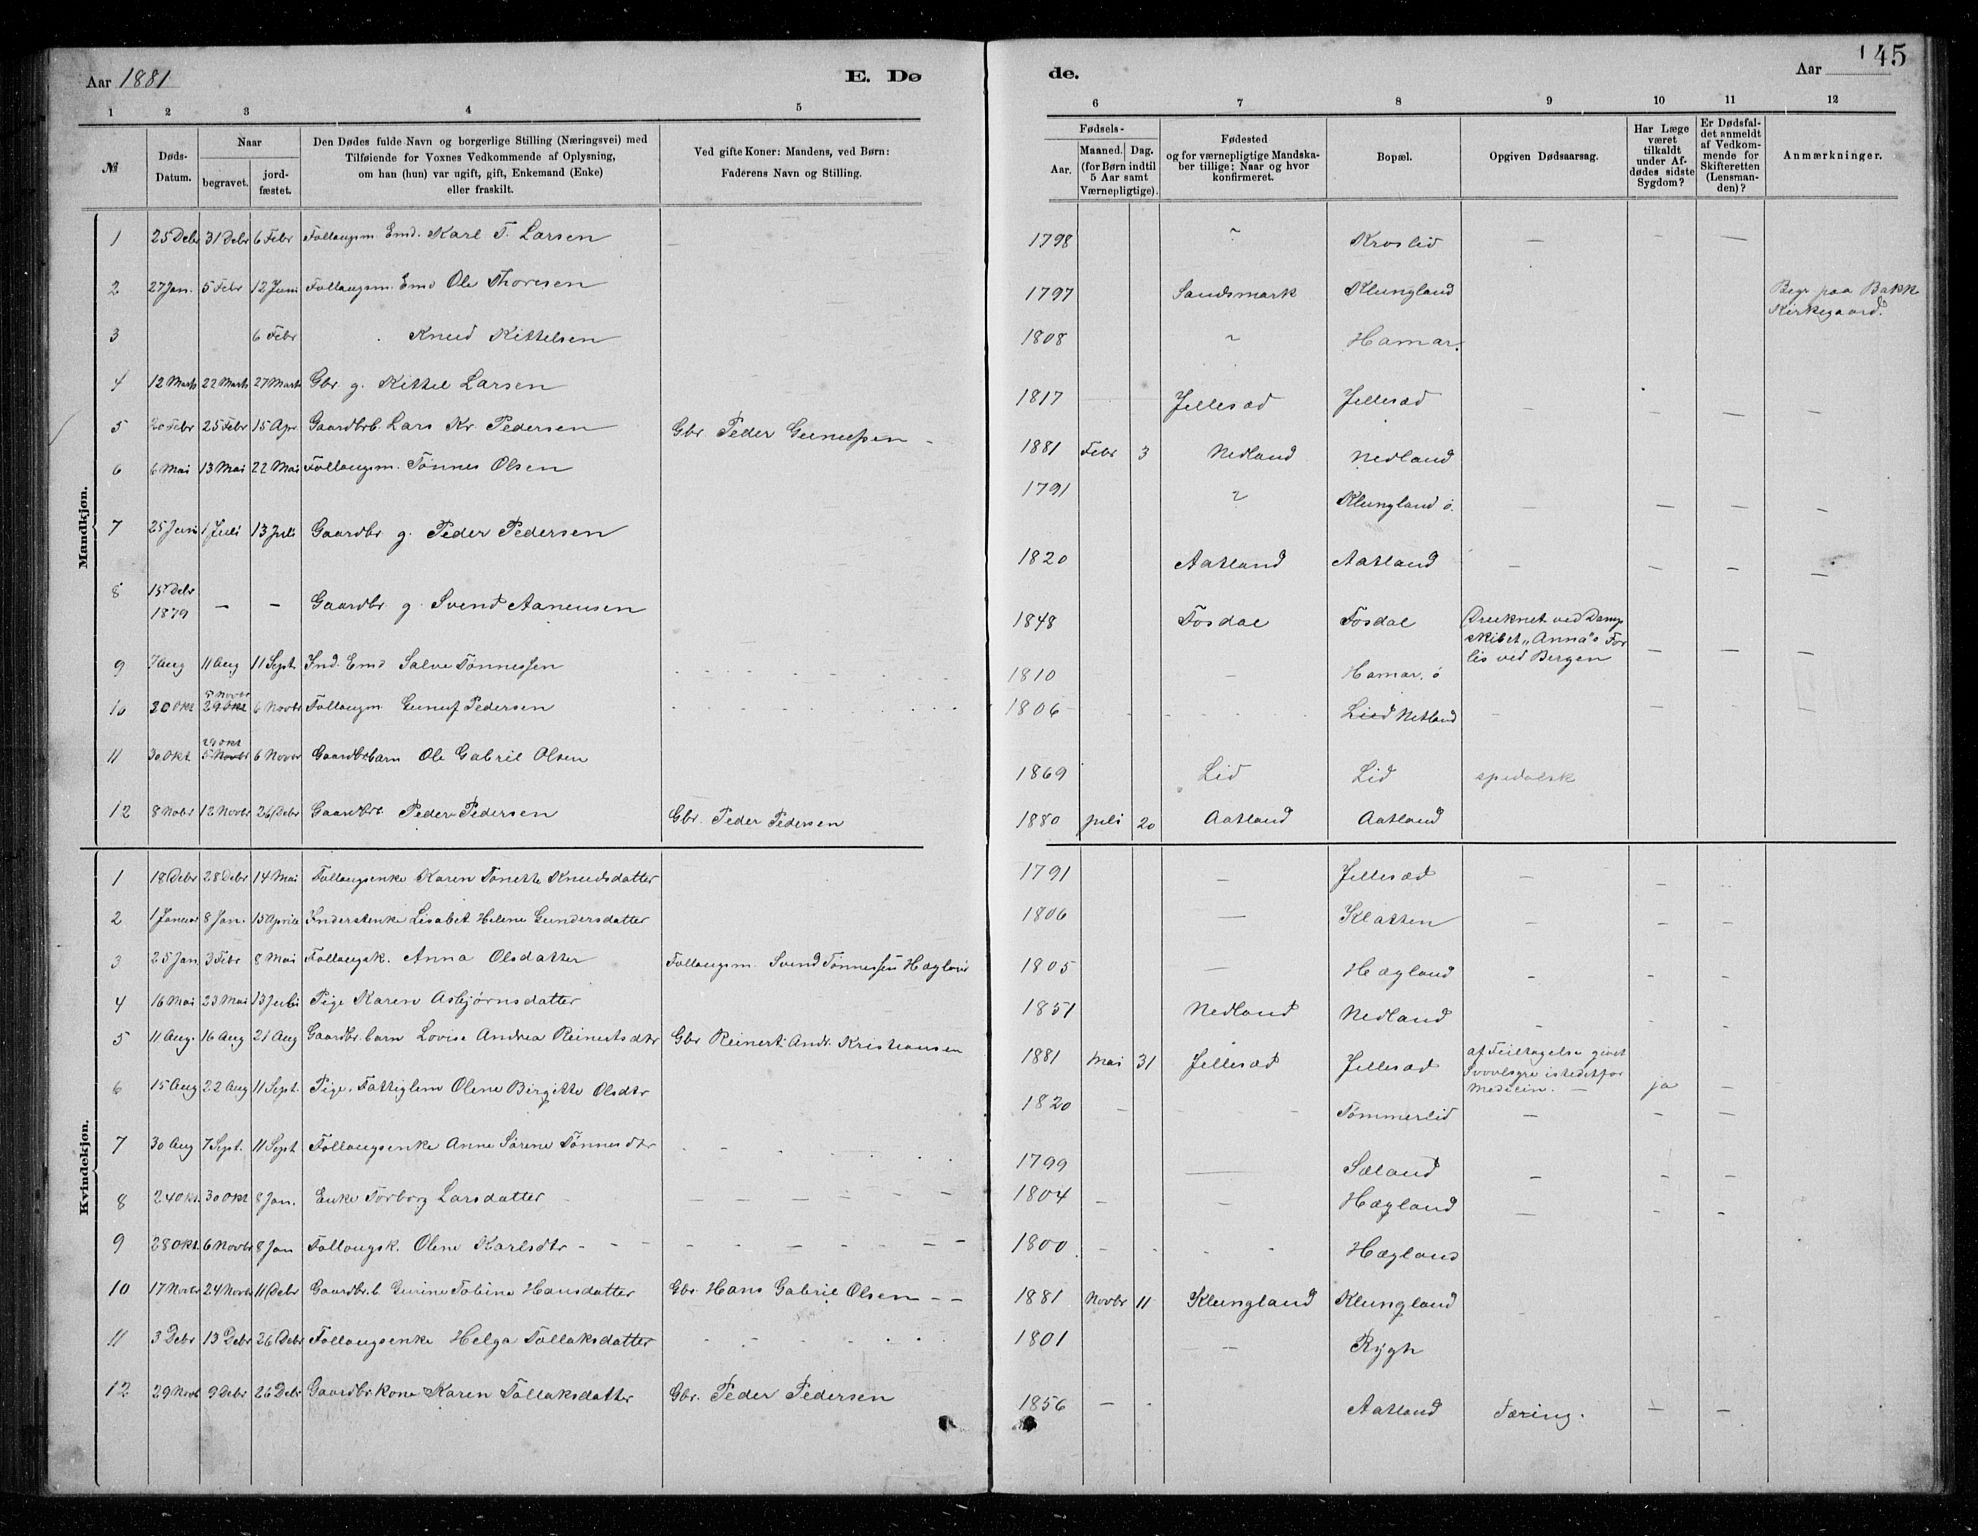 Aar 1881 E. Døde. Aar 145
1 2 3 4 5 6 7 8 9 10 11 12
№ Døds-Datum. Naar begravet. jordfæstet. Den Dødes fulde Navn og borgerlige Stilling (Næringsvei) med Tilføiende for Voxnes Vedkommende af Oplysning, om han (hun) var ugift, gift, Enkemand (Enke) eller fraskilt. Ved gifte Koner: Mandens, ved Børn: Faderens Navn og Stilling. Fødsels- Aar. Maaned. Dag. (for Børn indtil 5 Aar samt Værnepligtige). Fødested og for værnepligtige Mandskaber tillige: Naar og hvor konfirmeret. Bopæl. Opgiven Dødsaarsag. Har Læge været tilkaldt under Afdødes sidste Sygdom? Er Dødsfaldet anmeldt af Vedkommende for Skifteretten (Lensmanden)? Anmærkninger.
Mandkjøn.
1 25 Debr 31 Debr 6 Febr Follaugsm. Emd. Karl T. Larsen — 1798 ? Kroslid — — —
2 27 Jan. 5 Febr 12 Juni Follaugsm. Emd Ole Thoresen 1797 Sandsmark Klungland Begr paa Bakke Kirkegaard.
3 6 Febr Knud Kittelsen 1808 ? Hamar.
4 12 Marts 22 Marts 27 Marts Gbr g. Kittel Larsen 1817 Jellesæd Jellesæd — — — —
5 20 Febr 25 Febr 15 Apr. Gaardbrb. Lars Kr. Pedersen Gbr. Peder Gunnufsen - 1881 Febr 3 Nedland Nedland
6 6 Mai 13 Mai 22 Mai Follaugsm. Tønnes Olsen 1791 ? Klungland ø. — — — —
7 25 Juni 1 Juli 13 Juli Gaardbr g. Peder Pedersen 1820 Aatland Aatland — — — —
8 15 Debr 1879 — — Gaardbr g. Svend Aanensen 1848 Fosdal Fosdal Druknet ved Dampskibet „Anna"s Forlis ved Bergen — — —
9 7 Aug 11 Aug 11 Sept. Ind. Emd Salve Tønnessen 1810 — Hamar. ø
10 30 Okt 5 Novbr 29 Okt 6 Novbr Follaugsm Gunuf Pedersen 1806 Lied Netland — — —
11 20 Okt 29 Okt 5 Novbr 6 Novbr Gaardbrbarn Ole Gabriel Olsen 1869 Lid Lid spedalsk
12 8 Nobr 12 Novbr 26 Debr Gaardbrb. Peder Pedersen Gbr. Peder Pedersen 1880 juli 20 Aatland Aatland
Kvindekjøn.
1 18 Debr 28 Debr 14 Mai Follaugsenke Karen Tonette Knudsdatter 1791 — Jellesæd — — —
2 1 Januar 8 Jan. 15 April Inderstenke Lisabet Helene Gundersdatter 1806 — Klatten — — —
3 25 Jan 3 Febr 8 Mai Follaugsk. Anna Olsdatter Follaugsm. Svend Tønnessen Hægland 1805 — Hægland — — —
4 16 Mai 23 Mai 13 Juli Pige Karen Asbjørnsdatter 1851 Nedland Nedland — — —
5 11 Aug. 16 Aug 21 Aug Gaardbr.barn Lovise Andrea Reinertsdtr Gbr Reinert Andr. Kristiansen 1881 Mai 31 Jellesæd Jellesæd af Feiltagelse givet Svovlsyre istedetfor Medicin. — ja —
6 15 Aug 22 Aug 11 Sept. Pige. Fattiglem Olene Birgitte Olsdtr 1820 — Tømmerlid — — —
7 30 Aug 7 Sept. 11 Sept Follaugsenke Anne Sørene Tønnesdtr 1799 — Sæland — — —
8 24 Okt. 30 Okt 8 Jan. Enke Torborg Larsdatter - 1804 — — Hægland — — -
9 28 Okt. 6 Novbr 8 Jan Follaugsk. Olene Karlsdtr - - - 1800 Hægland
10 17 Novbr 24 Novbr 11 Debr Gaardbr.b Gurine Tobine Hansdatter Gbr. Hans Gabriel Olsen - - 1881 Novbr 11 Klungland Klungland
11 3 Debr 13 Debr 26 Debr Follaugsenke Helga Tollaksdatter 1801 — Rygh
12 29 Novb 9 Debr 26 Debr Gaardbrkone Karen Tollaksdatter Gbr. Peder Pedersen 1856 — Aatland Tæring. — —